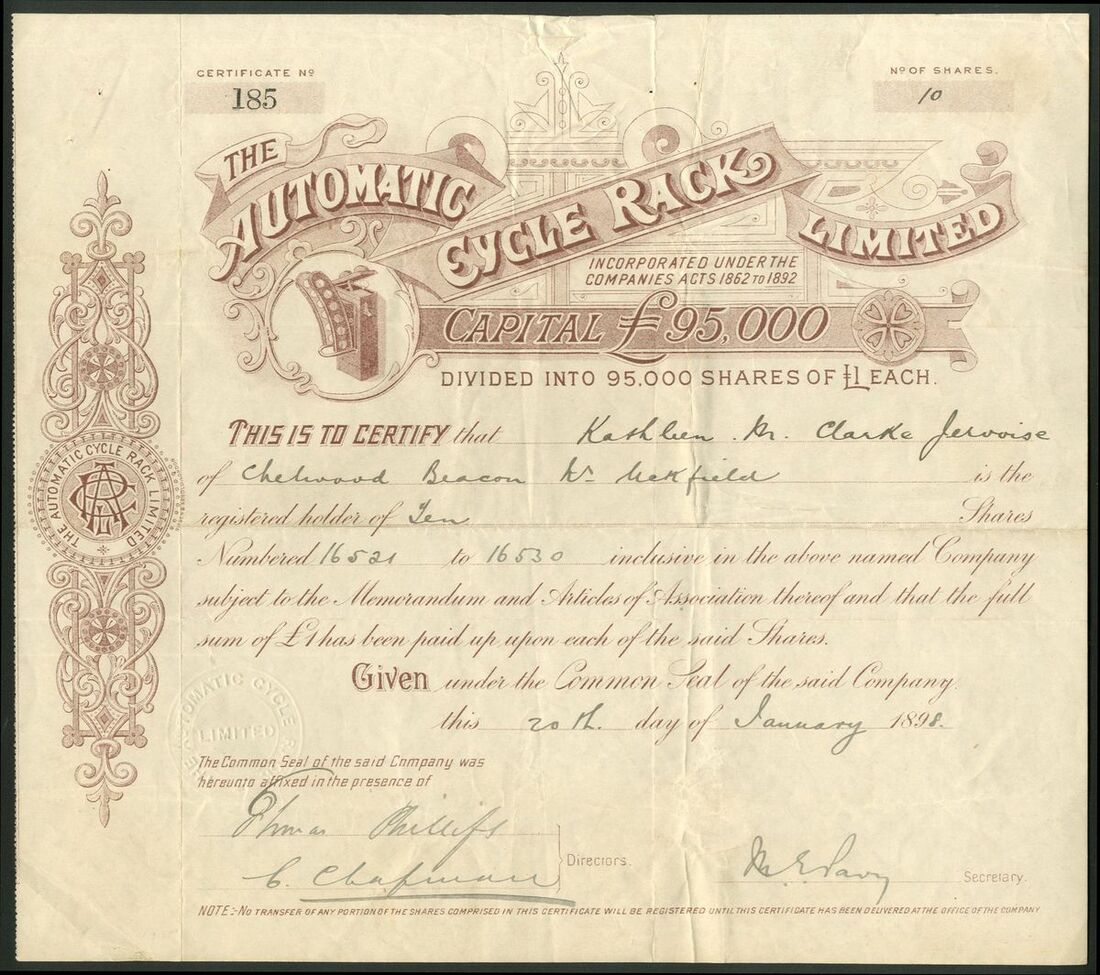 CERTIFICATE Nº
185
Nº OF SHARES.
10
THE
AUTOMATIC
CYCLE RACK
LIMITED
INCORPORATED UNDER THE
COMPANIES ACTS 1862 TO 1892
CAPITAL £95,000
DIVIDED INTO 95,000 SHARES OF £1 EACH.
THE AUTOMATIC CYCLE RACK LIMITED
THIS IS TO CERTIFY that Kathleen M. Clarke Jervoise
of Chelwood Beacon Nr Uckfield is the
registered holder of Ten Shares
Numbered 16521 to 16530 inclusive in the above named Company
subject to the Memorandum and Articles of Association thereof and that the full
sum of £1 has been paid up upon each of the said Shares.
Given under the Common Seal of the said Company.
this 20th. day of January 1898.
AUTOMATIC CYCLE
LIMITED
The Common Seal of the said Company was
hereunto affixed in the presence of
Thomas Phillips
C. Chapman
Directors.
Secretary.
NOTE:-NO TRANSFER OF ANY PORTION OF THE SHARES COMPRISED IN THIS CERTIFICATE WILL BE REGISTERED UNTIL THIS CERTIFICATE HAS BEEN DELIVERED AT THE OFFICE OF THE COMPANY